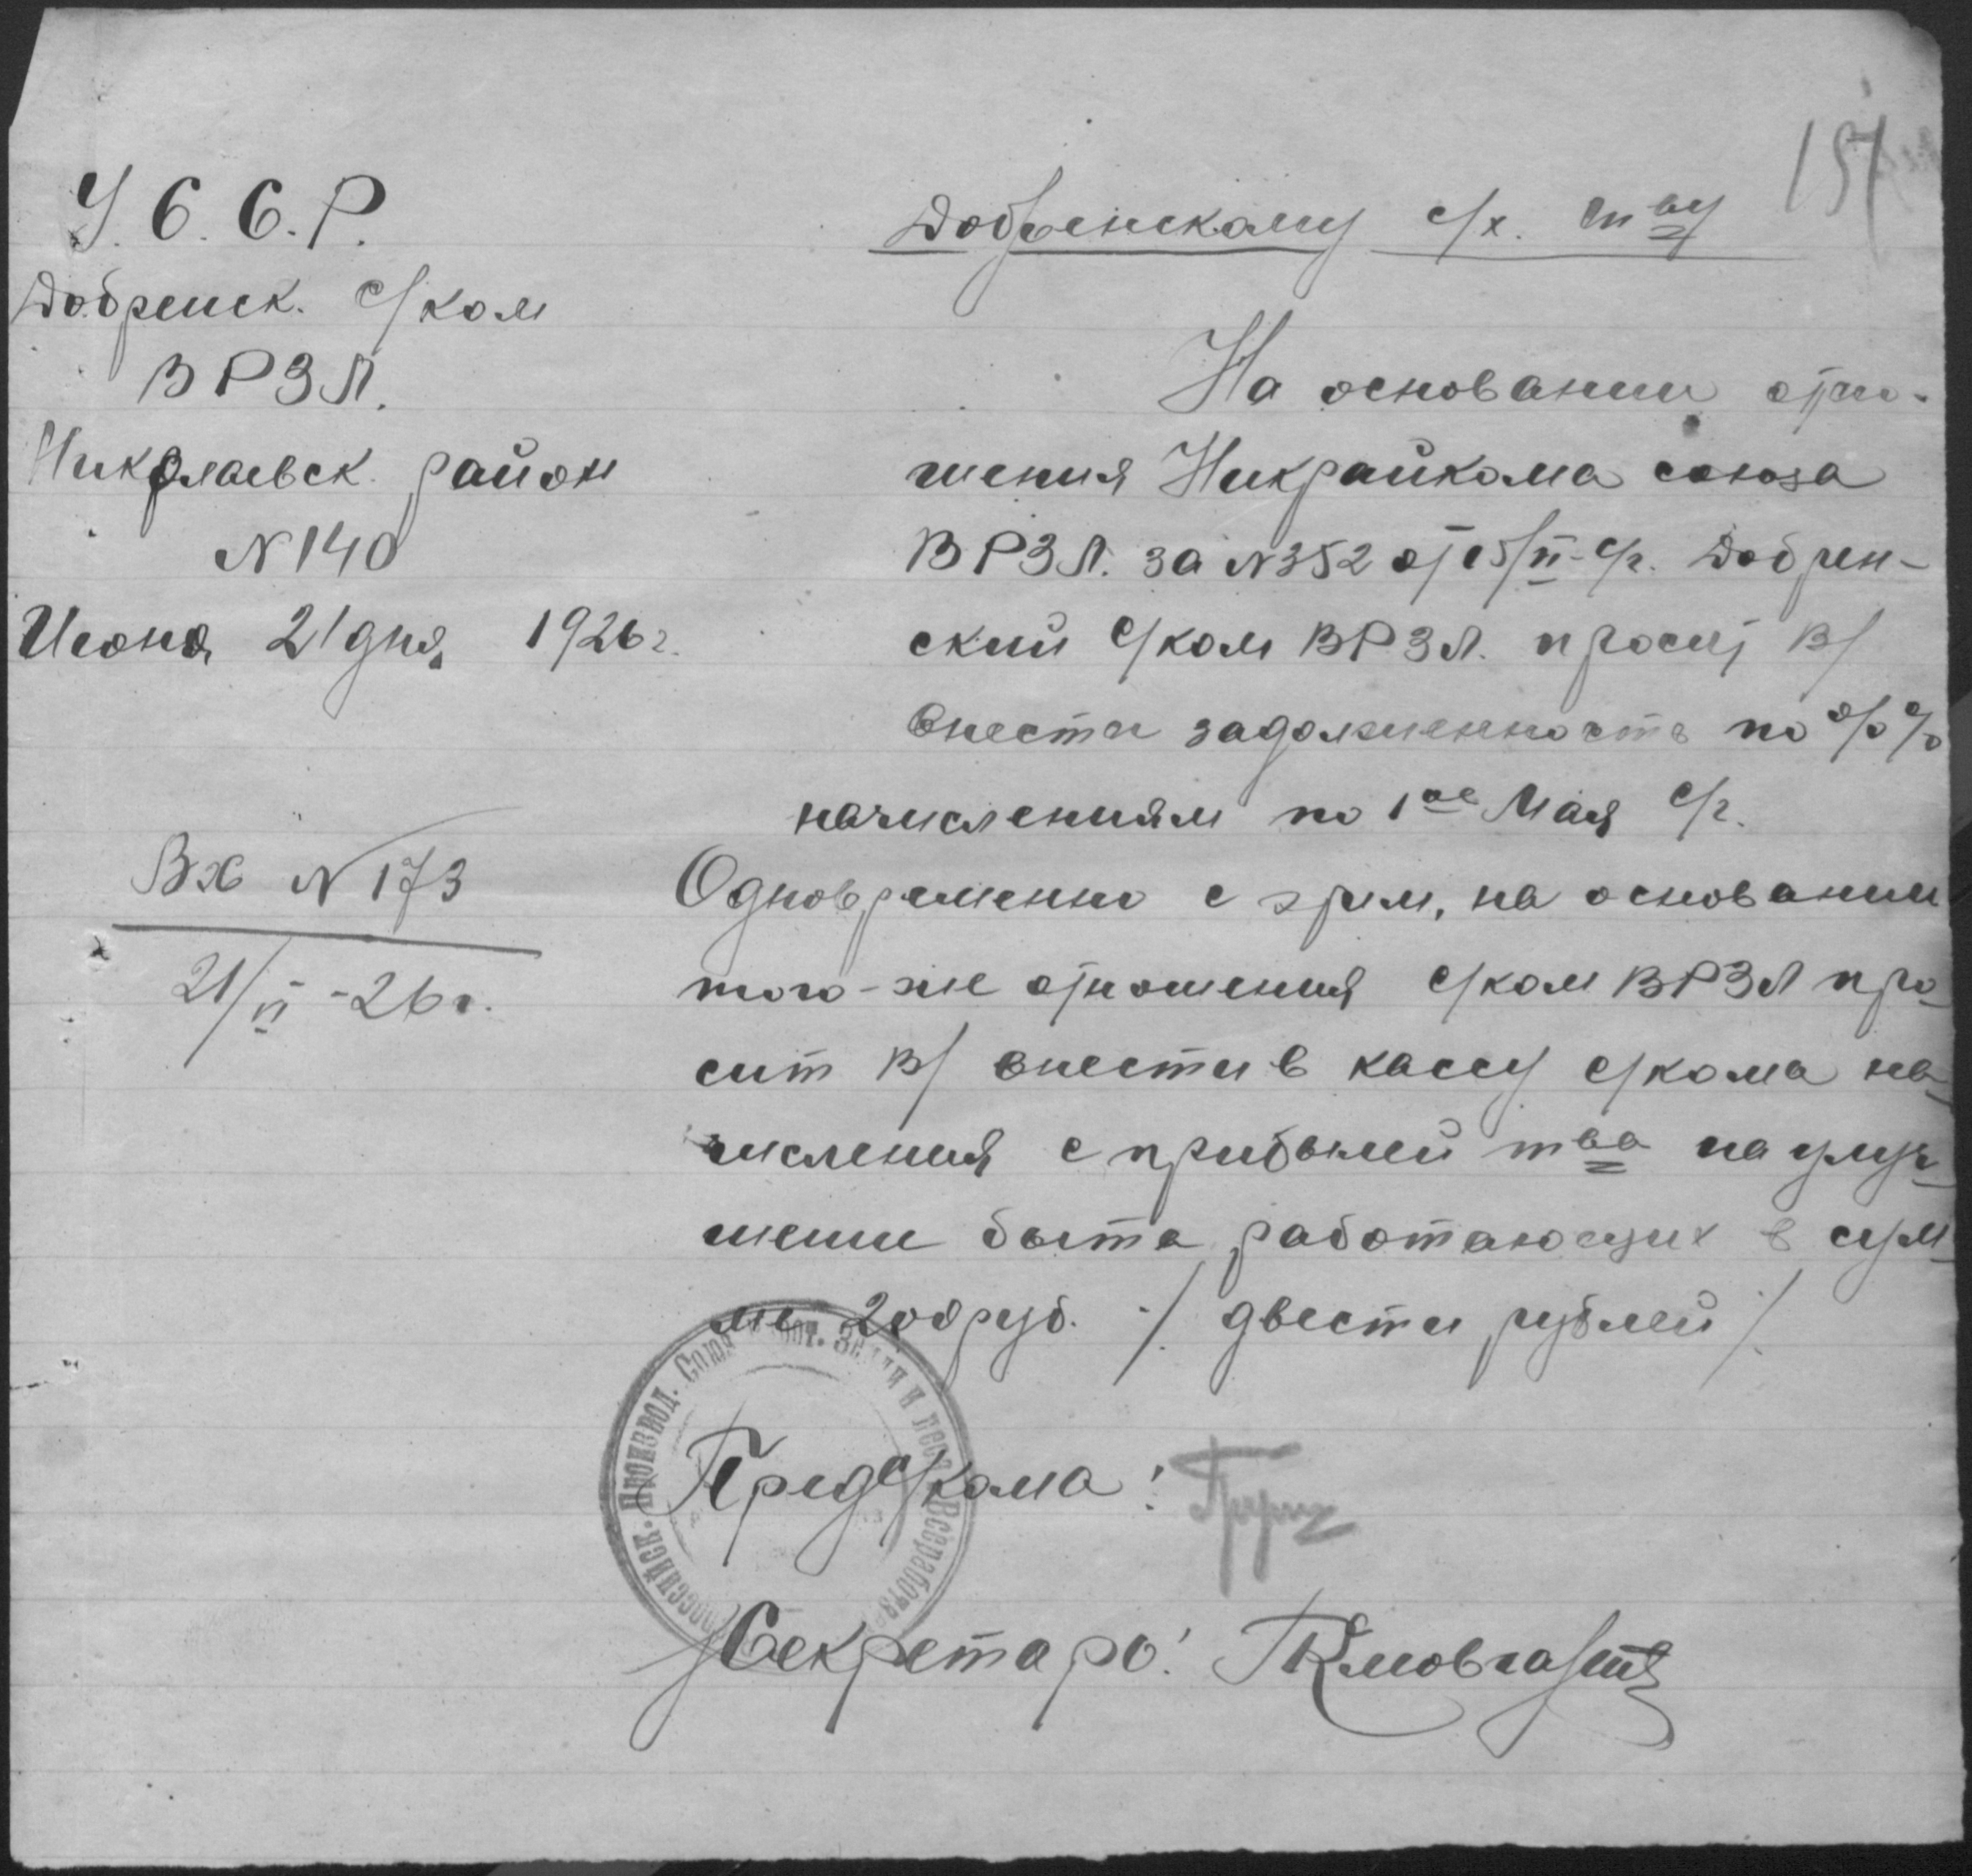 157
У.С.С.Р.
Добренск. с/ком
ВРЗЛ.
Николаевск. район
N 140
Июня 21 дня 1926 г.
Вх N 173
21/VI - 26 г.
Добренскому с/х. т-ву
На основании отно-
шения Никрайкома союза
ВРЗЛ. за N 352 от 15/VI - с/г. Добрен-
ский с/ком ВРЗЛ. просит В/
внести задолженность по % %
начислениям по 1ое Мая с/г.
Одновременно с этим, на основании
того-же отношения с/ком ВРЗЛ про-
сит В/ внести в кассу с/кома на-
числения с прибылей тва на улуч-
шении быта работающих в сум-
ме 200 руб. /. двести рублей /.
Пред с/кома:
Секретарь:
Производ. Союз Работ. Земли и Леса Всеработзем